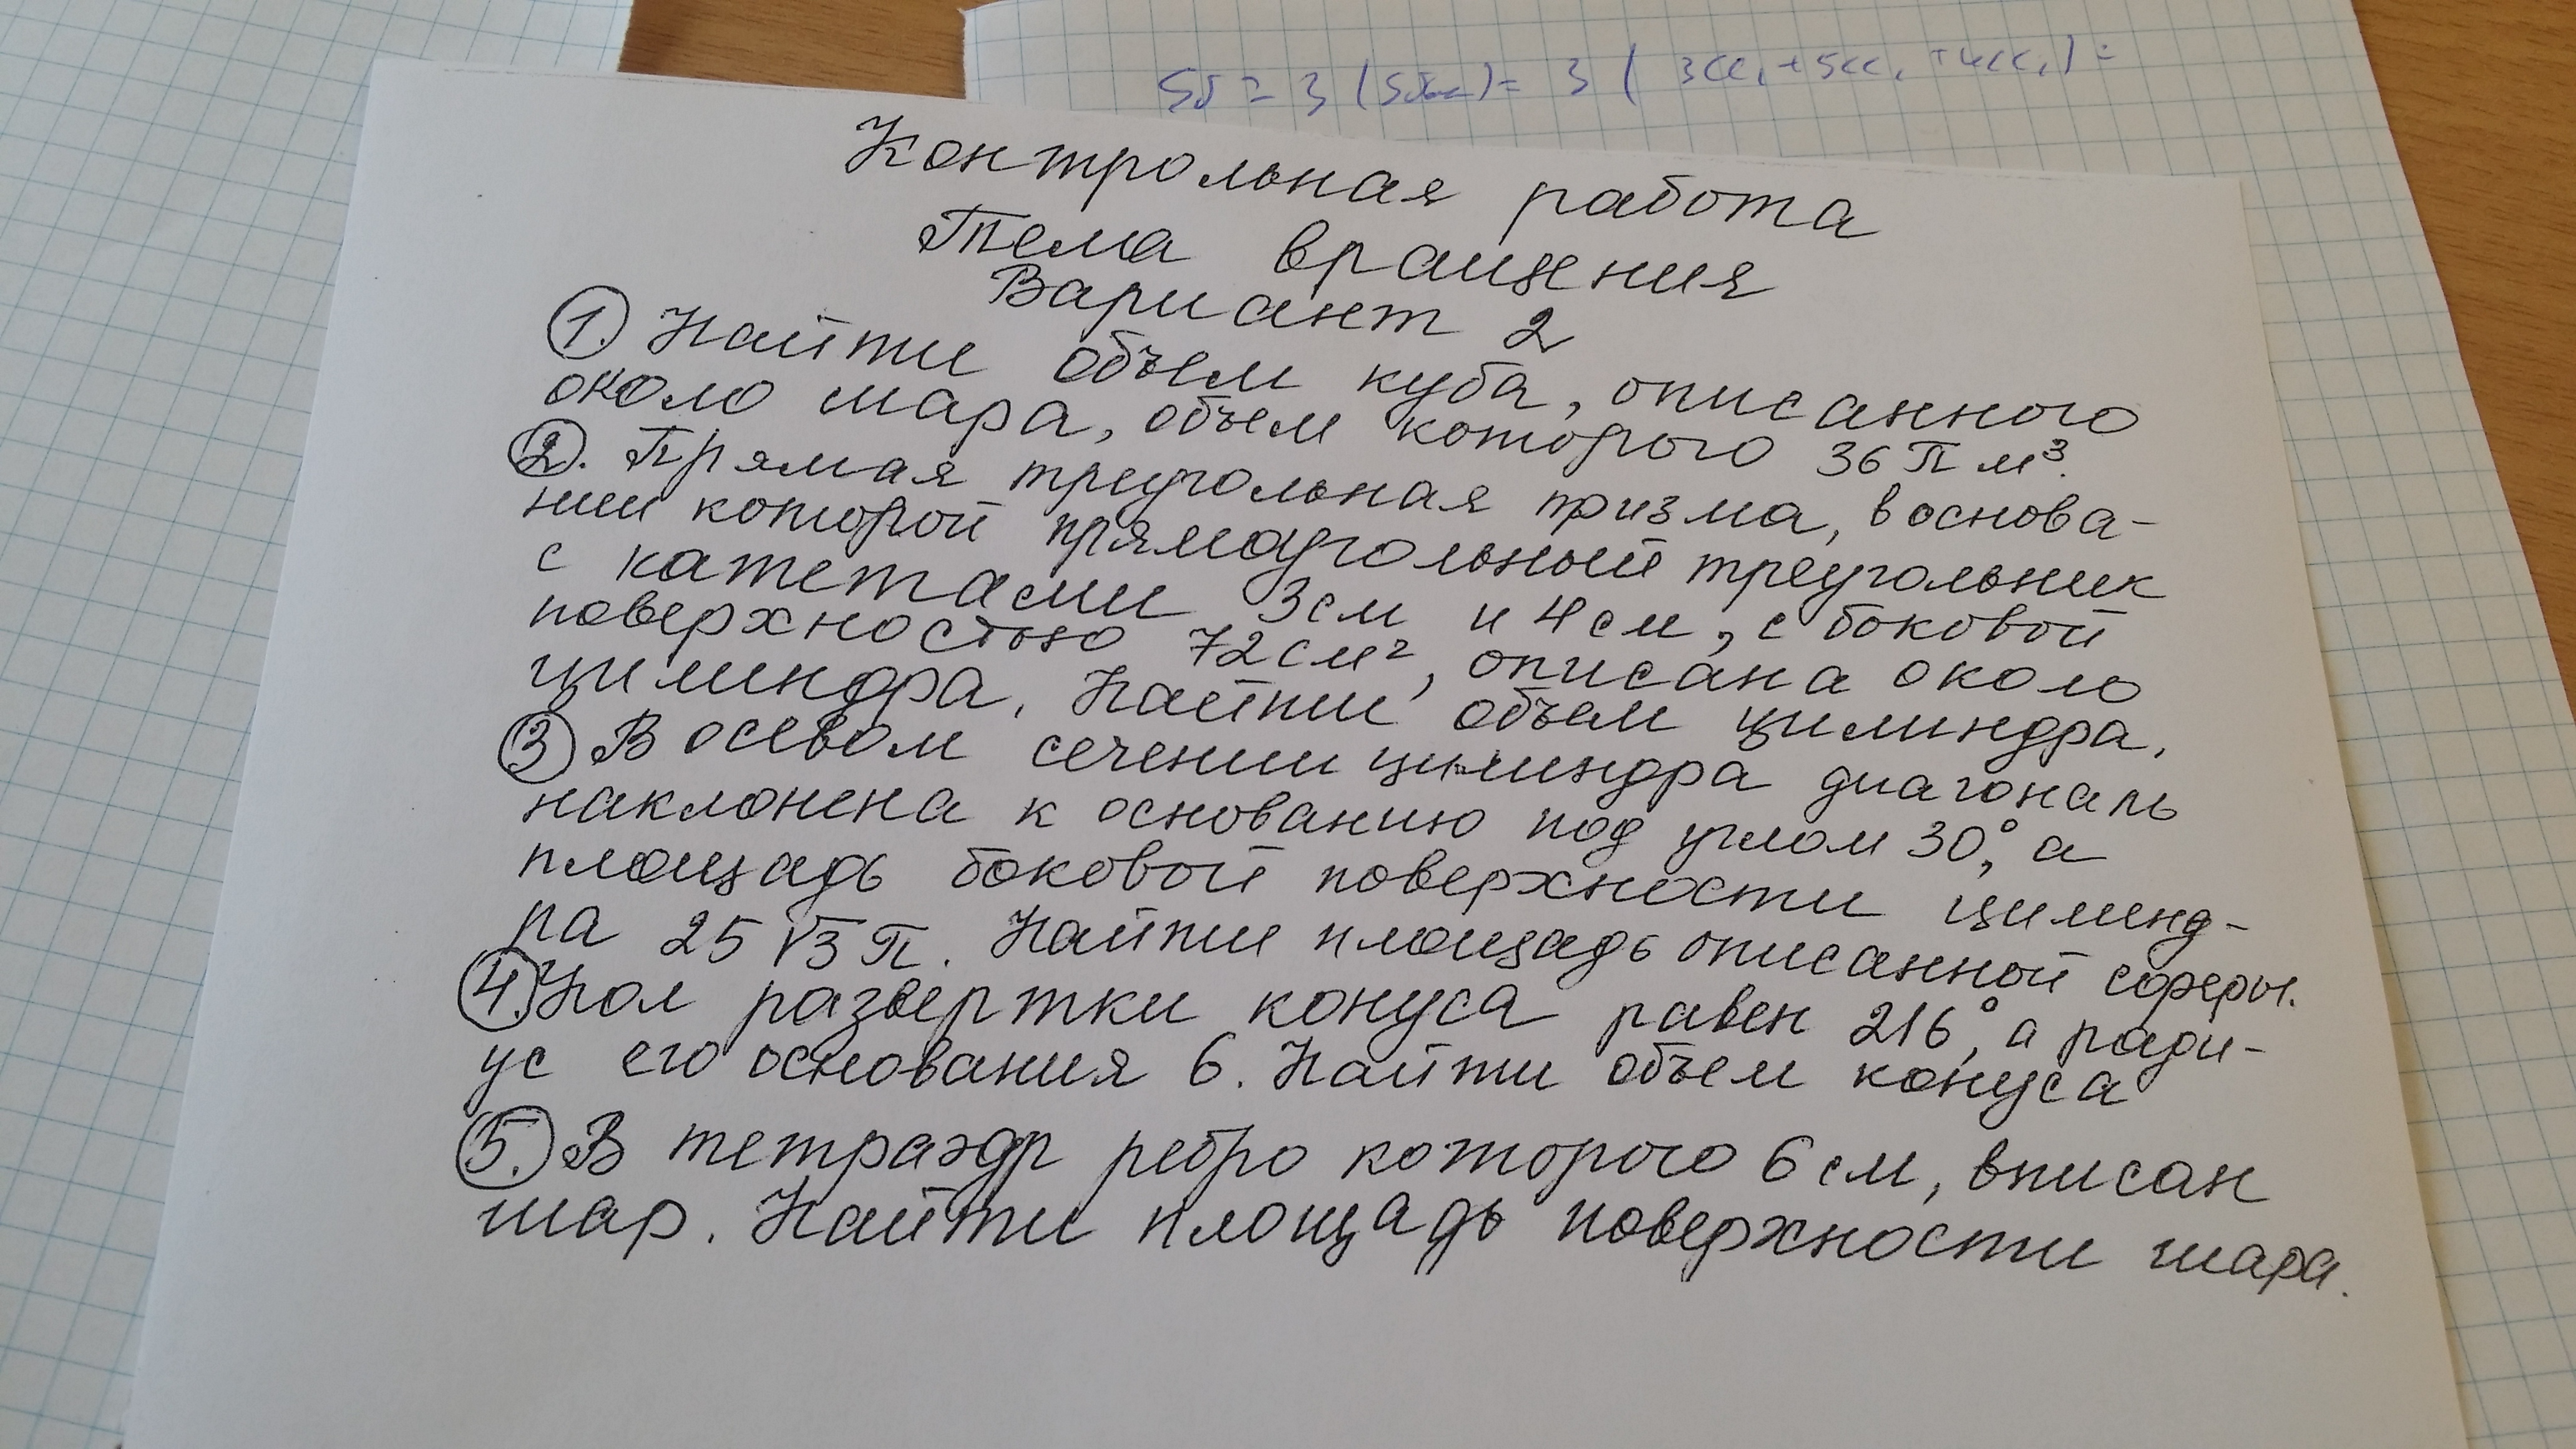 Sб = 3 (        ) = 3 ( 3CC₁ + 5CC₁ + 4CC₁) =
Контрольная работа
Тела вращения
Вариант 2
1. Найти объем куба, описанного
около шара, объем которого 36π м³.
2. Прямая треугольная призма, в основа-
нии которой прямоугольный треугольник
с катетами 3см и 4см, с боковой
поверхностью 72см², описана около
цилиндра. Найти объем цилиндра.
3 В осевом сечении цилиндра диагональ
наклонена к основанию под углом 30°, а
площадь боковой поверхности цилинд-
ра 25√3π. Найти площадь описанной сферы.
4. Угол развертки конуса равен 216°, а ради-
ус его основания 6. Найти объем конуса
5. В тетраэдр ребро которого 6см, вписан
шар. Найти площадь поверхности шара.